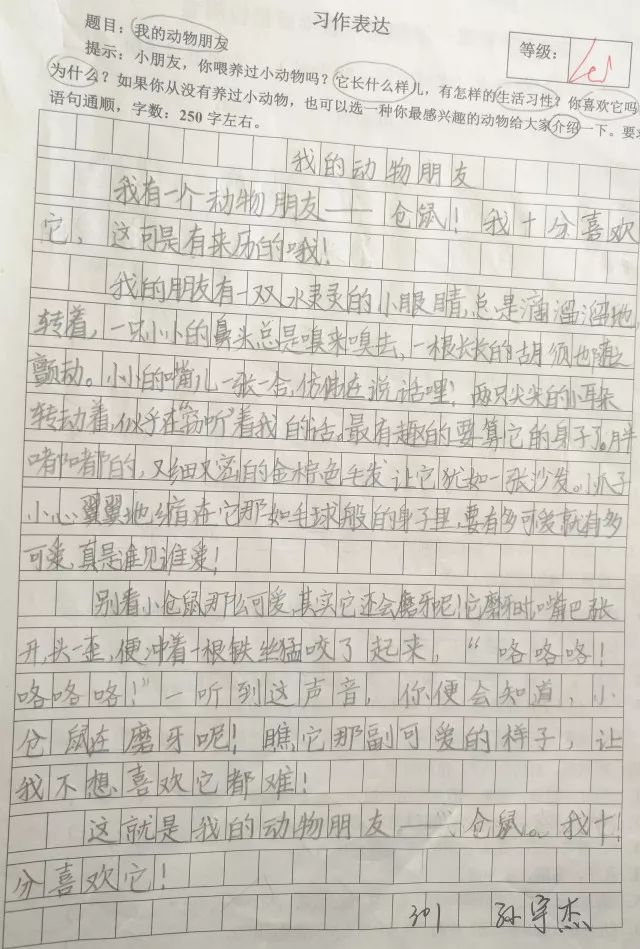 习作表达
题目：我的动物朋友
等级：
提示：小朋友，你喂养过小动物吗？它长什么样儿，有怎样的生活习性？你喜欢它吗
为什么？如果你从没有养过小动物，也可以选一种你最感兴趣的动物给大家介绍一下。要求
语句通顺，字数：250字左右。
我的动物朋友
我有一个动物朋友——仓鼠！我十分喜欢
它，这可是有来历的哦！
我的朋友有一双水灵灵的小眼睛，总是滴溜溜地
转着，一只小小的鼻头总是嗅来嗅去，一根长长的胡须也随之
颤动。小小的嘴儿一张一合，仿佛在说话哩！两只尖尖的小耳朵
转动着，似乎在“窃听”着我的话。最有趣的要算它的身子了。胖
嘟嘟的，又细又密的金棕色毛发让它犹如一张沙发。小爪子
小心翼翼地缩在它那如毛球般的身子里，要有多可爱就有多
可爱，真是谁见谁爱！
别看小仓鼠那么可爱，其实它还会磨牙呢！它磨牙时，嘴巴张
开，头一歪，便冲着一根铁丝猛咬了起来，“咯咯咯！
咯咯咯！”一听到这声音，你便会知道，小
仓鼠在磨牙呢！瞧，它那副可爱的样子，让
我不想喜欢它都难！
这就是我的动物朋友——仓鼠。我十
分喜欢它！
301 孙宇杰